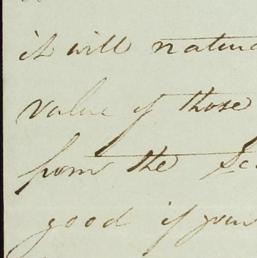 it will natura
value of those
from the Sc
good if your